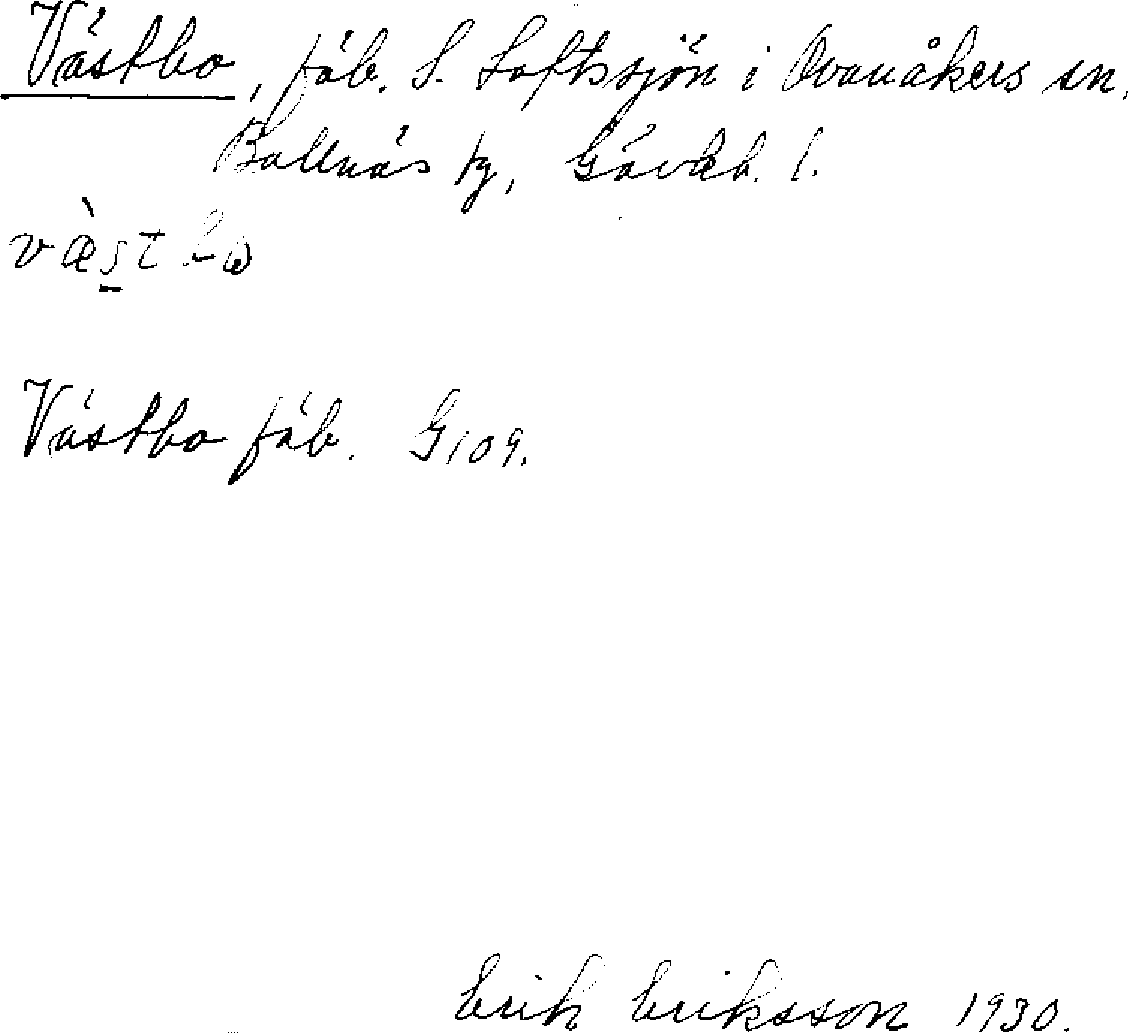 Västbo, fäb. S. Loftssjön i Ovanåkers sn.
Bollnäs tg, Gävleb. l.
væ̀stbω
Västbo fäb. G109.
Erik Eriksson 1930.